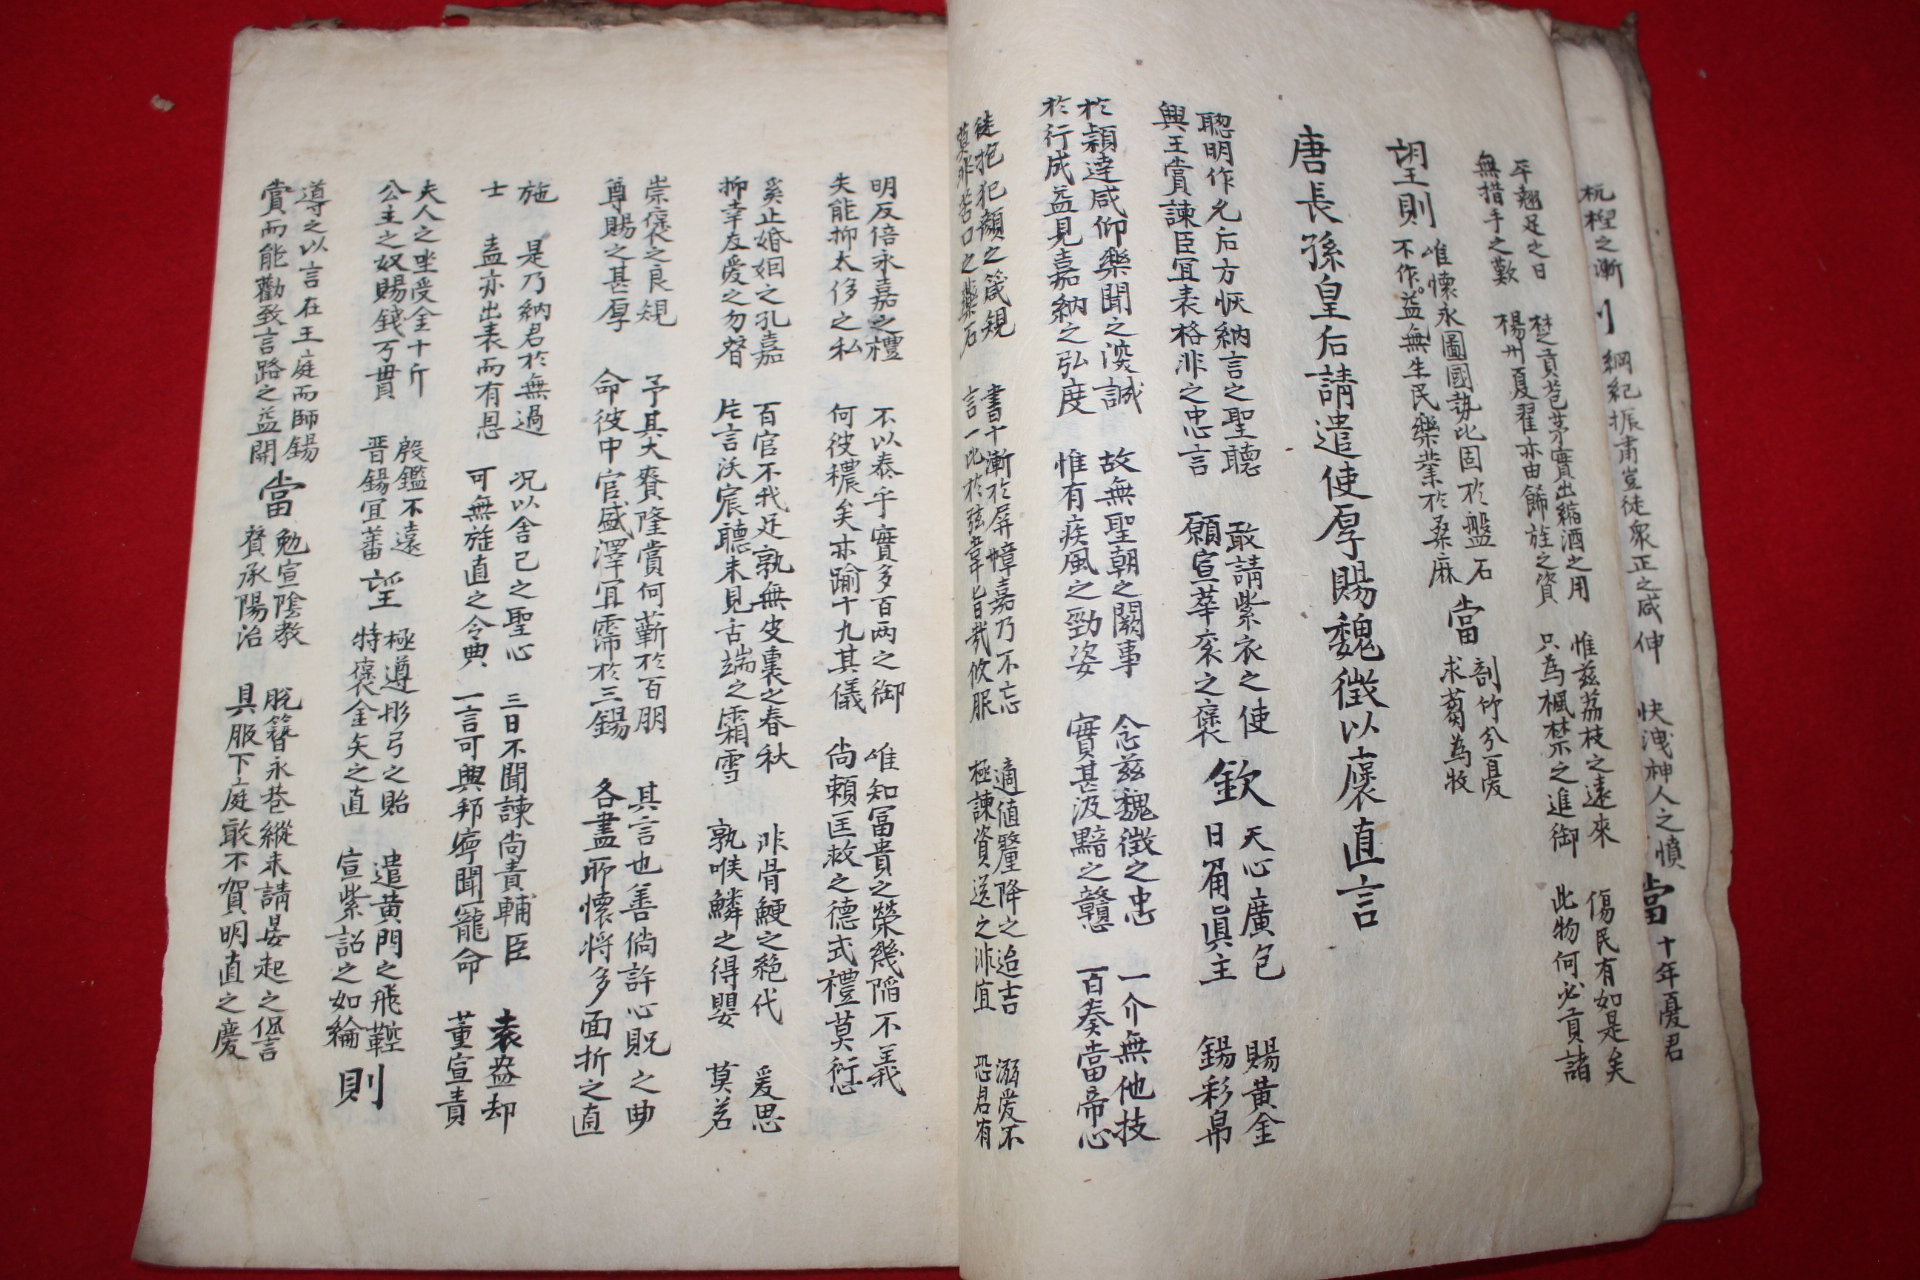 杌楻之漸 則 綱紀振肅豈徒衆正之咸伸 快洩神人之憤 當 十年憂君
楚貢苞茅實出縮酒之用 惟玆荔枝之遠來 傷民有如是矣
楊州夏翟亦由餙旌之資 只為楓禁之進御 此物何必貢諸
平翹足之日
無措手之歎
望 則 唯懷永圖國勢比固於盤石 當 剖竹分憂
不作無益生民樂業於桑麻 求蒭為牧
唐長孫皇后請遣使厚賜魏徵以褒直言
聰明作元后方恢納言之聖聽 敢請紫衣之使 欽 天心廣包 賜黃金
興王賞諫臣宜表格非之忠言 願宣華衮之褒 日角眞主 錫彩帛
於穎達咸仰樂聞之淡誠 故無聖朝之闕事 念玆魏徵之忠 一介無他技
於行成益見嘉納之弘度 惟有疾風之勁姿 實甚汲黯之戇 百奏當帝心
徒抱犯顏之箴規 書十漸於屏幛嘉乃不忘 適値釐降之迨吉 溺愛不
莫非苦口之藥石 言一比於弦韋旨哉攸服 極諫資送之非宜 恐君有
明反倍永嘉之禮 不以泰乎實多百兩之御 唯知富貴之榮幾陷不義
失能抑太侈之私 何彼穠矣亦踰十九其儀 尚賴匡救之德式禮莫愆
奚止婚姻之孔嘉 百官不我足孰無皮裏之春秋 非骨鯁之絶代 爰思
抑幸友愛之勿替 片言沃宸聽未見舌端之霜雪 孰喉鱗之得嬰 莫若
崇褒之良規 予其大賚隆賞何蘄於百朋 其言也善倘許心貺之曲
尊賜之甚厚 命彼中官盛澤宜霈於三錫 各盡所懷將多面折之直
施 是乃納君於無過 況以舍己之聖心 三日不聞諫尚責輔臣 袁盎却
士 盖亦出表而有恩 可無旌直之令典 一言可興邦寧聞寵命 董宣責
夫人之坐受金十斤 殷鑑不遠 望 極遵彤弓之貽 遣黃門之飛鞚 則
公主之奴賜錢万貫 晋錫宜蕃 特褒金矢之直 宣紫詔之如綸
導之以言在王庭而師錫 當 勉宣陰教 脫簪永巷縱未請晏起之
賞而能勸致言路之益開 賛承陽治 具服下庭敢不賀明直之慶